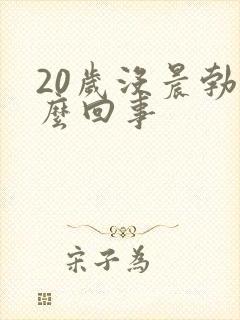 20歲沒晨勃
麼回事
宋子為